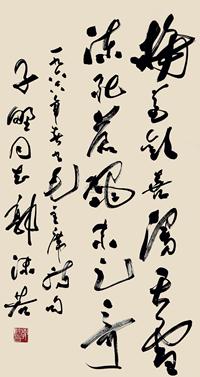 梅花歡喜漫天雪
凍死蒼蠅未足奇
一九六六年春書毛主席詩句
子野同志 郭沫若